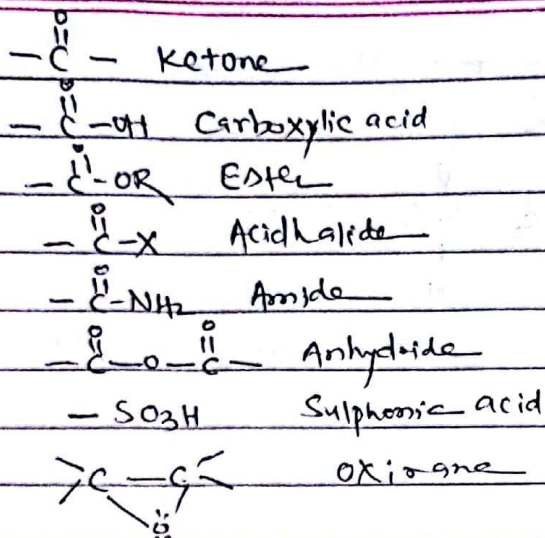 O
||
— C — Ketone
O
||
— C–OH Carboxylic acid
O
||
— C–OR Ester
O
||
— C–X Acidhalide
O
||
— C–NH2 Amide
O O
|| ||
— C—O—C— Anhydride
— SO3H Sulphonic acid
C — C Oxirane
O